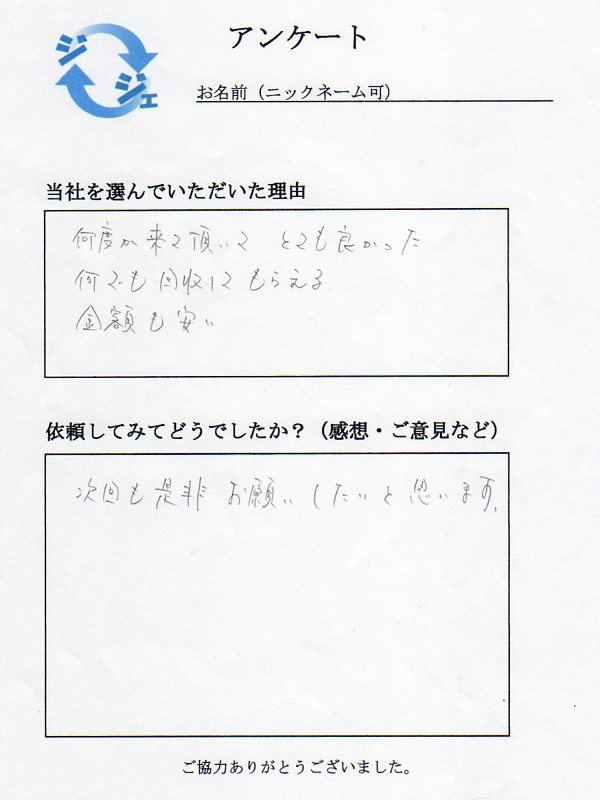 ジジェ
アンケート
お名前（ニックネーム可）
当社を選んでいただいた理由
何度か来て頂いて とても良かった
何でも回収してもらえる
金額も安い
依頼してみてどうでしたか？（感想・ご意見など）
次回も是非お願いしたいと思います。
ご協力ありがとうございました。